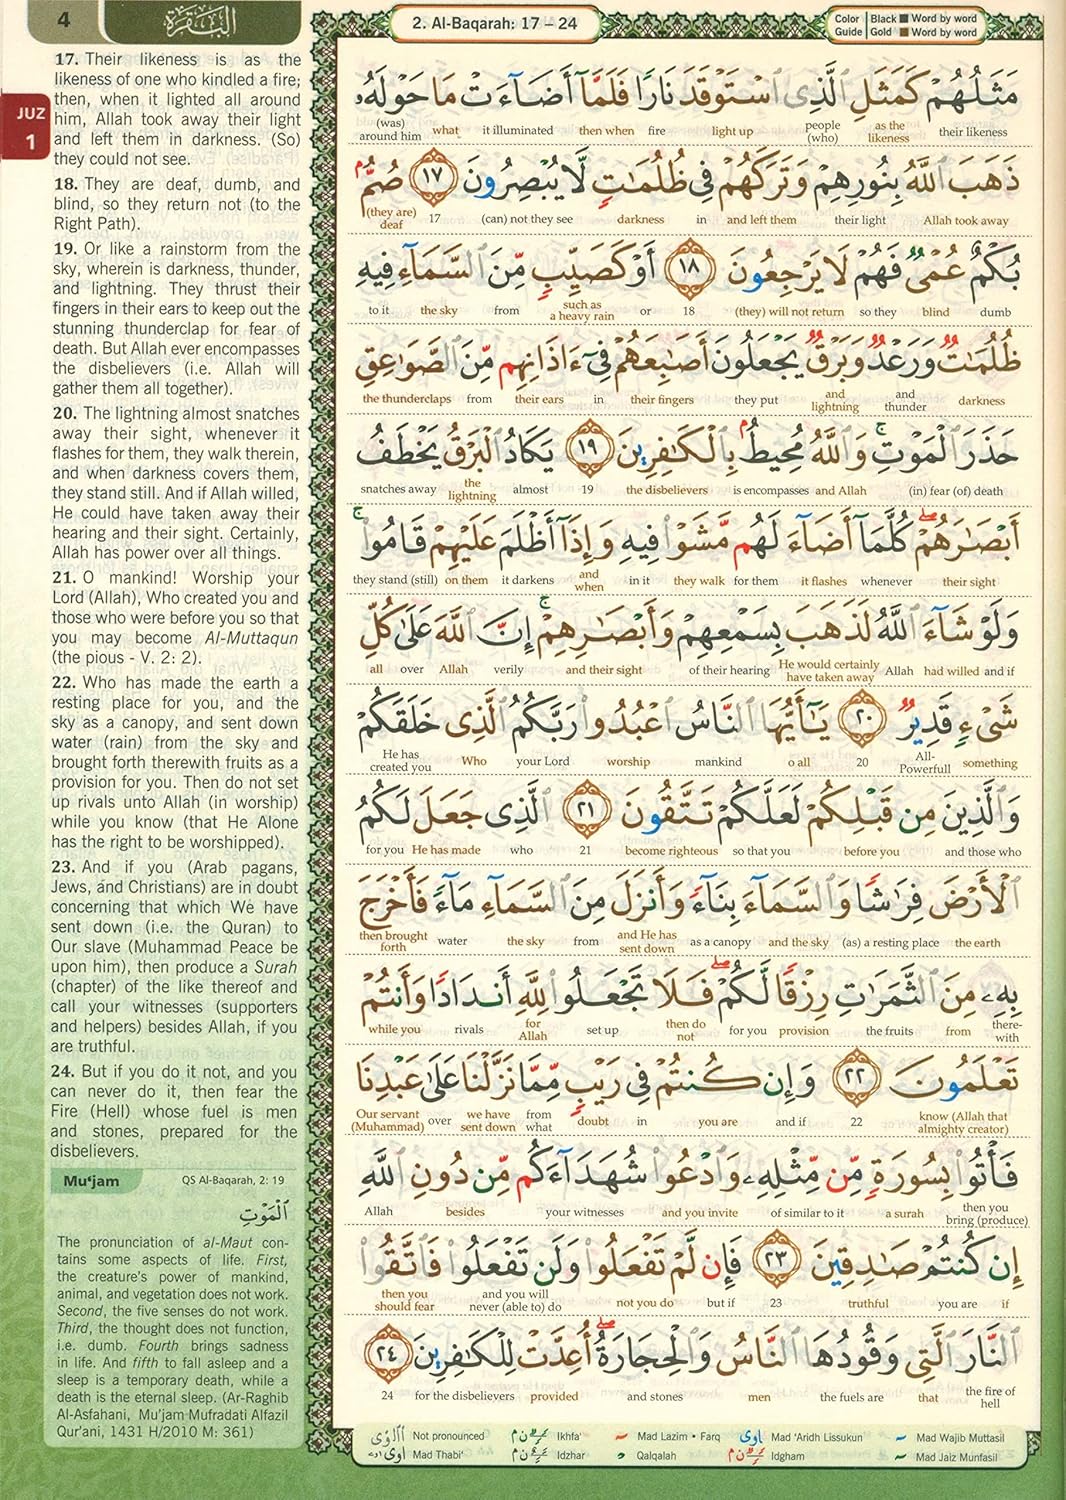 4
البقرة
2. Al-Baqarah: 17 – 24
Color Guide
Black ■ Word by word
Gold ■ Word by word
JUZ
1
17. Their likeness is as the
likeness of one who kindled a fire;
then, when it lighted all around
him, Allah took away their light
and left them in darkness. (So)
they could not see.
18. They are deaf, dumb, and
blind, so they return not (to the
Right Path).
19. Or like a rainstorm from the
sky, wherein is darkness, thunder,
and lightning. They thrust their
fingers in their ears to keep out the
stunning thunderclap for fear of
death. But Allah ever encompasses
the disbelievers (i.e. Allah will
gather them all together).
20. The lightning almost snatches
away their sight, whenever it
flashes for them, they walk therein,
and when darkness covers them,
they stand still. And if Allah willed,
He could have taken away their
hearing and their sight. Certainly,
Allah has power over all things.
21. O mankind! Worship your
Lord (Allah), Who created you and
those who were before you so that
you may become Al-Muttaqun
(the pious - V. 2: 2).
22. Who has made the earth a
resting place for you, and the
sky as a canopy, and sent down
water (rain) from the sky and
brought forth therewith fruits as a
provision for you. Then do not set
up rivals unto Allah (in worship)
while you know (that He Alone
has the right to be worshipped).
23. And if you (Arab pagans,
Jews, and Christians) are in doubt
concerning that which We have
sent down (i.e. the Quran) to
Our slave (Muhammad Peace be
upon him), then produce a Surah
(chapter) of the like thereof and
call your witnesses (supporters
and helpers) besides Allah, if you
are truthful.
24. But if you do it not, and you
can never do it, then fear the
Fire (Hell) whose fuel is men
and stones, prepared for the
disbelievers.
Mu'jam
QS Al-Baqarah, 2: 19
الْمَوْتِ
The pronunciation of al-Maut con-
tains some aspects of life. First,
the creature's power of mankind,
animal, and vegetation does not work.
Second, the five senses do not work.
Third, the thought does not function,
i.e. dumb. Fourth brings sadness
in life. And fifth to fall asleep and a
sleep is a temporary death, while a
death is the eternal sleep. (Ar-Raghib
Al-Asfahani, Mu'jam Mufradati Alfazil
Qur'ani, 1431 H/2010 M: 361)
مَثَلُهُمْ كَمَثَلِ ٱلَّذِى ٱسْتَوْقَدَ نَارًا فَلَمَّآ أَضَآءَتْ مَا حَوْلَهُۥ
their likeness as the likeness people (who) light up fire then when it illuminated what (was) around him
ذَهَبَ ٱللَّهُ بِنُورِهِمْ وَتَرَكَهُمْ فِى ظُلُمَٰتٍ لَّا يُبْصِرُونَ ١٧ صُمٌّۢ
Allah took away their light and left them in darkness (can) not they see 17 (they are) deaf
بُكْمٌ عُمْىٌ فَهُمْ لَا يَرْجِعُونَ ١٨ أَوْ كَصَيِّبٍ مِّنَ ٱلسَّمَآءِ فِيهِ
dumb blind so they (they) will not return 18 or such as a heavy rain from the sky to it
ظُلُمَٰتٌ وَرَعْدٌ وَبَرْقٌ يَجْعَلُونَ أَصَٰبِعَهُمْ فِىٓ ءَاذَانِهِم مِّنَ ٱلصَّوَٰعِقِ
darkness and thunder and lightning they put their fingers in their ears from the thunderclaps
حَذَرَ ٱلْمَوْتِ ۚ وَٱللَّهُ مُحِيطٌۢ بِٱلْكَٰفِرِينَ ١٩ يَكَادُ ٱلْبَرْقُ يَخْطَفُ
(in) fear (of) death and Allah is encompasses the disbelievers 19 almost the lightning snatches away
أَبْصَٰرَهُمْ ۖ كُلَّمَآ أَضَآءَ لَهُم مَّشَوْا۟ فِيهِ وَإِذَآ أَظْلَمَ عَلَيْهِمْ قَامُوا۟ ۚ
their sight whenever it flashes for them they walk in it and when it darkens on them they stand (still)
وَلَوْ شَآءَ ٱللَّهُ لَذَهَبَ بِسَمْعِهِمْ وَأَبْصَٰرِهِمْ ۚ إِنَّ ٱللَّهَ عَلَىٰ كُلِّ
and if had willed Allah He would certainly have taken away of their hearing and their sight verily Allah over all
شَىْءٍ قَدِيرٌ ٢٠ يَٰٓأَيُّهَا ٱلنَّاسُ ٱعْبُدُوا۟ رَبَّكُمُ ٱلَّذِى خَلَقَكُمْ
something All-Powerfull 20 o all mankind worship your Lord Who He has created you
وَٱلَّذِينَ مِن قَبْلِكُمْ لَعَلَّكُمْ تَتَّقُونَ ٢١ ٱلَّذِى جَعَلَ لَكُمُ
and those who before you so that you become righteous 21 who He has made for you
ٱلْأَرْضَ فِرَٰشًا وَٱلسَّمَآءَ بِنَآءً وَأَنزَلَ مِنَ ٱلسَّمَآءِ مَآءً فَأَخْرَجَ
the earth (as) a resting place and the sky as a canopy and He has sent down from the sky water then brought forth
بِهِۦ مِنَ ٱلثَّمَرَٰتِ رِزْقًا لَّكُمْ ۖ فَلَا تَجْعَلُوا۟ لِلَّهِ أَندَادًا وَأَنتُمْ
there-with from the fruits provision for you then do not set up for Allah rivals while you
تَعْلَمُونَ ٢٢ وَإِن كُنتُمْ فِى رَيْبٍ مِّمَّا نَزَّلْنَا عَلَىٰ عَبْدِنَا
know (Allah that almighty creator) 22 and if you are in doubt from what we have sent down over Our servant (Muhammad)
فَأْتُوا۟ بِسُورَةٍ مِّن مِّثْلِهِۦ وَٱدْعُوا۟ شُهَدَآءَكُم مِّن دُونِ ٱللَّهِ
then you bring (produce) a surah of similar to it and you invite your witnesses besides Allah
إِن كُنتُمْ صَٰدِقِينَ ٢٣ فَإِن لَّمْ تَفْعَلُوا۟ وَلَن تَفْعَلُوا۟ فَٱتَّقُوا۟
if you are truthful 23 but if not you do and you will never (able to) do then you should fear
ٱلنَّارَ ٱلَّتِى وَقُودُهَا ٱلنَّاسُ وَٱلْحِجَارَةُ ۖ أُعِدَّتْ لِلْكَٰفِرِينَ ٢٤
the fire of hell that the fuels are men and stones provided for the disbelievers 24
Not pronounced Ikhfa' Mad Lazim • Farq Mad 'Aridh Lissukun Mad Wajib Muttasil
Mad Thabi' Idzhar Qalqalah Idgham Mad Jaiz Munfasil